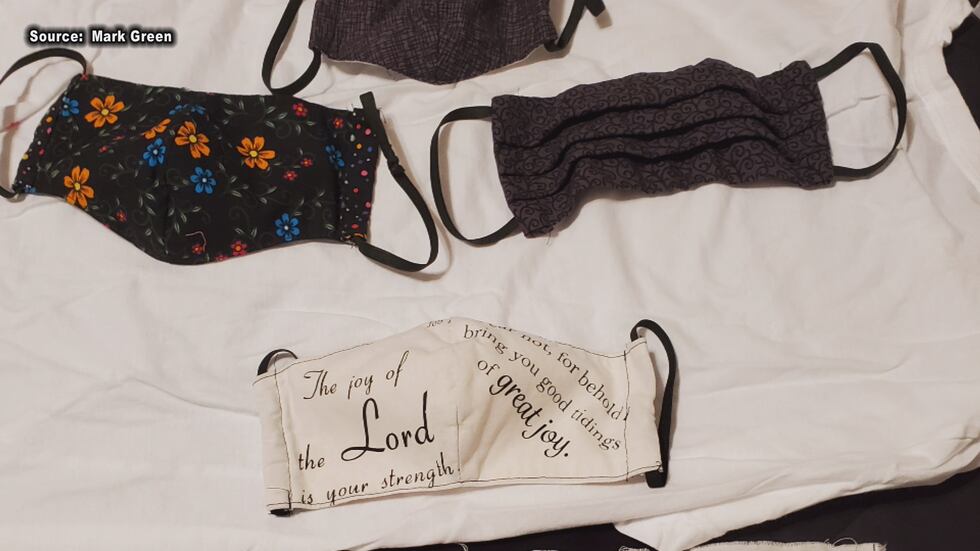 Source: Mark Green
The joy of
the Lord
is your strength.
not, for behold
bring you good tidings
of great joy.